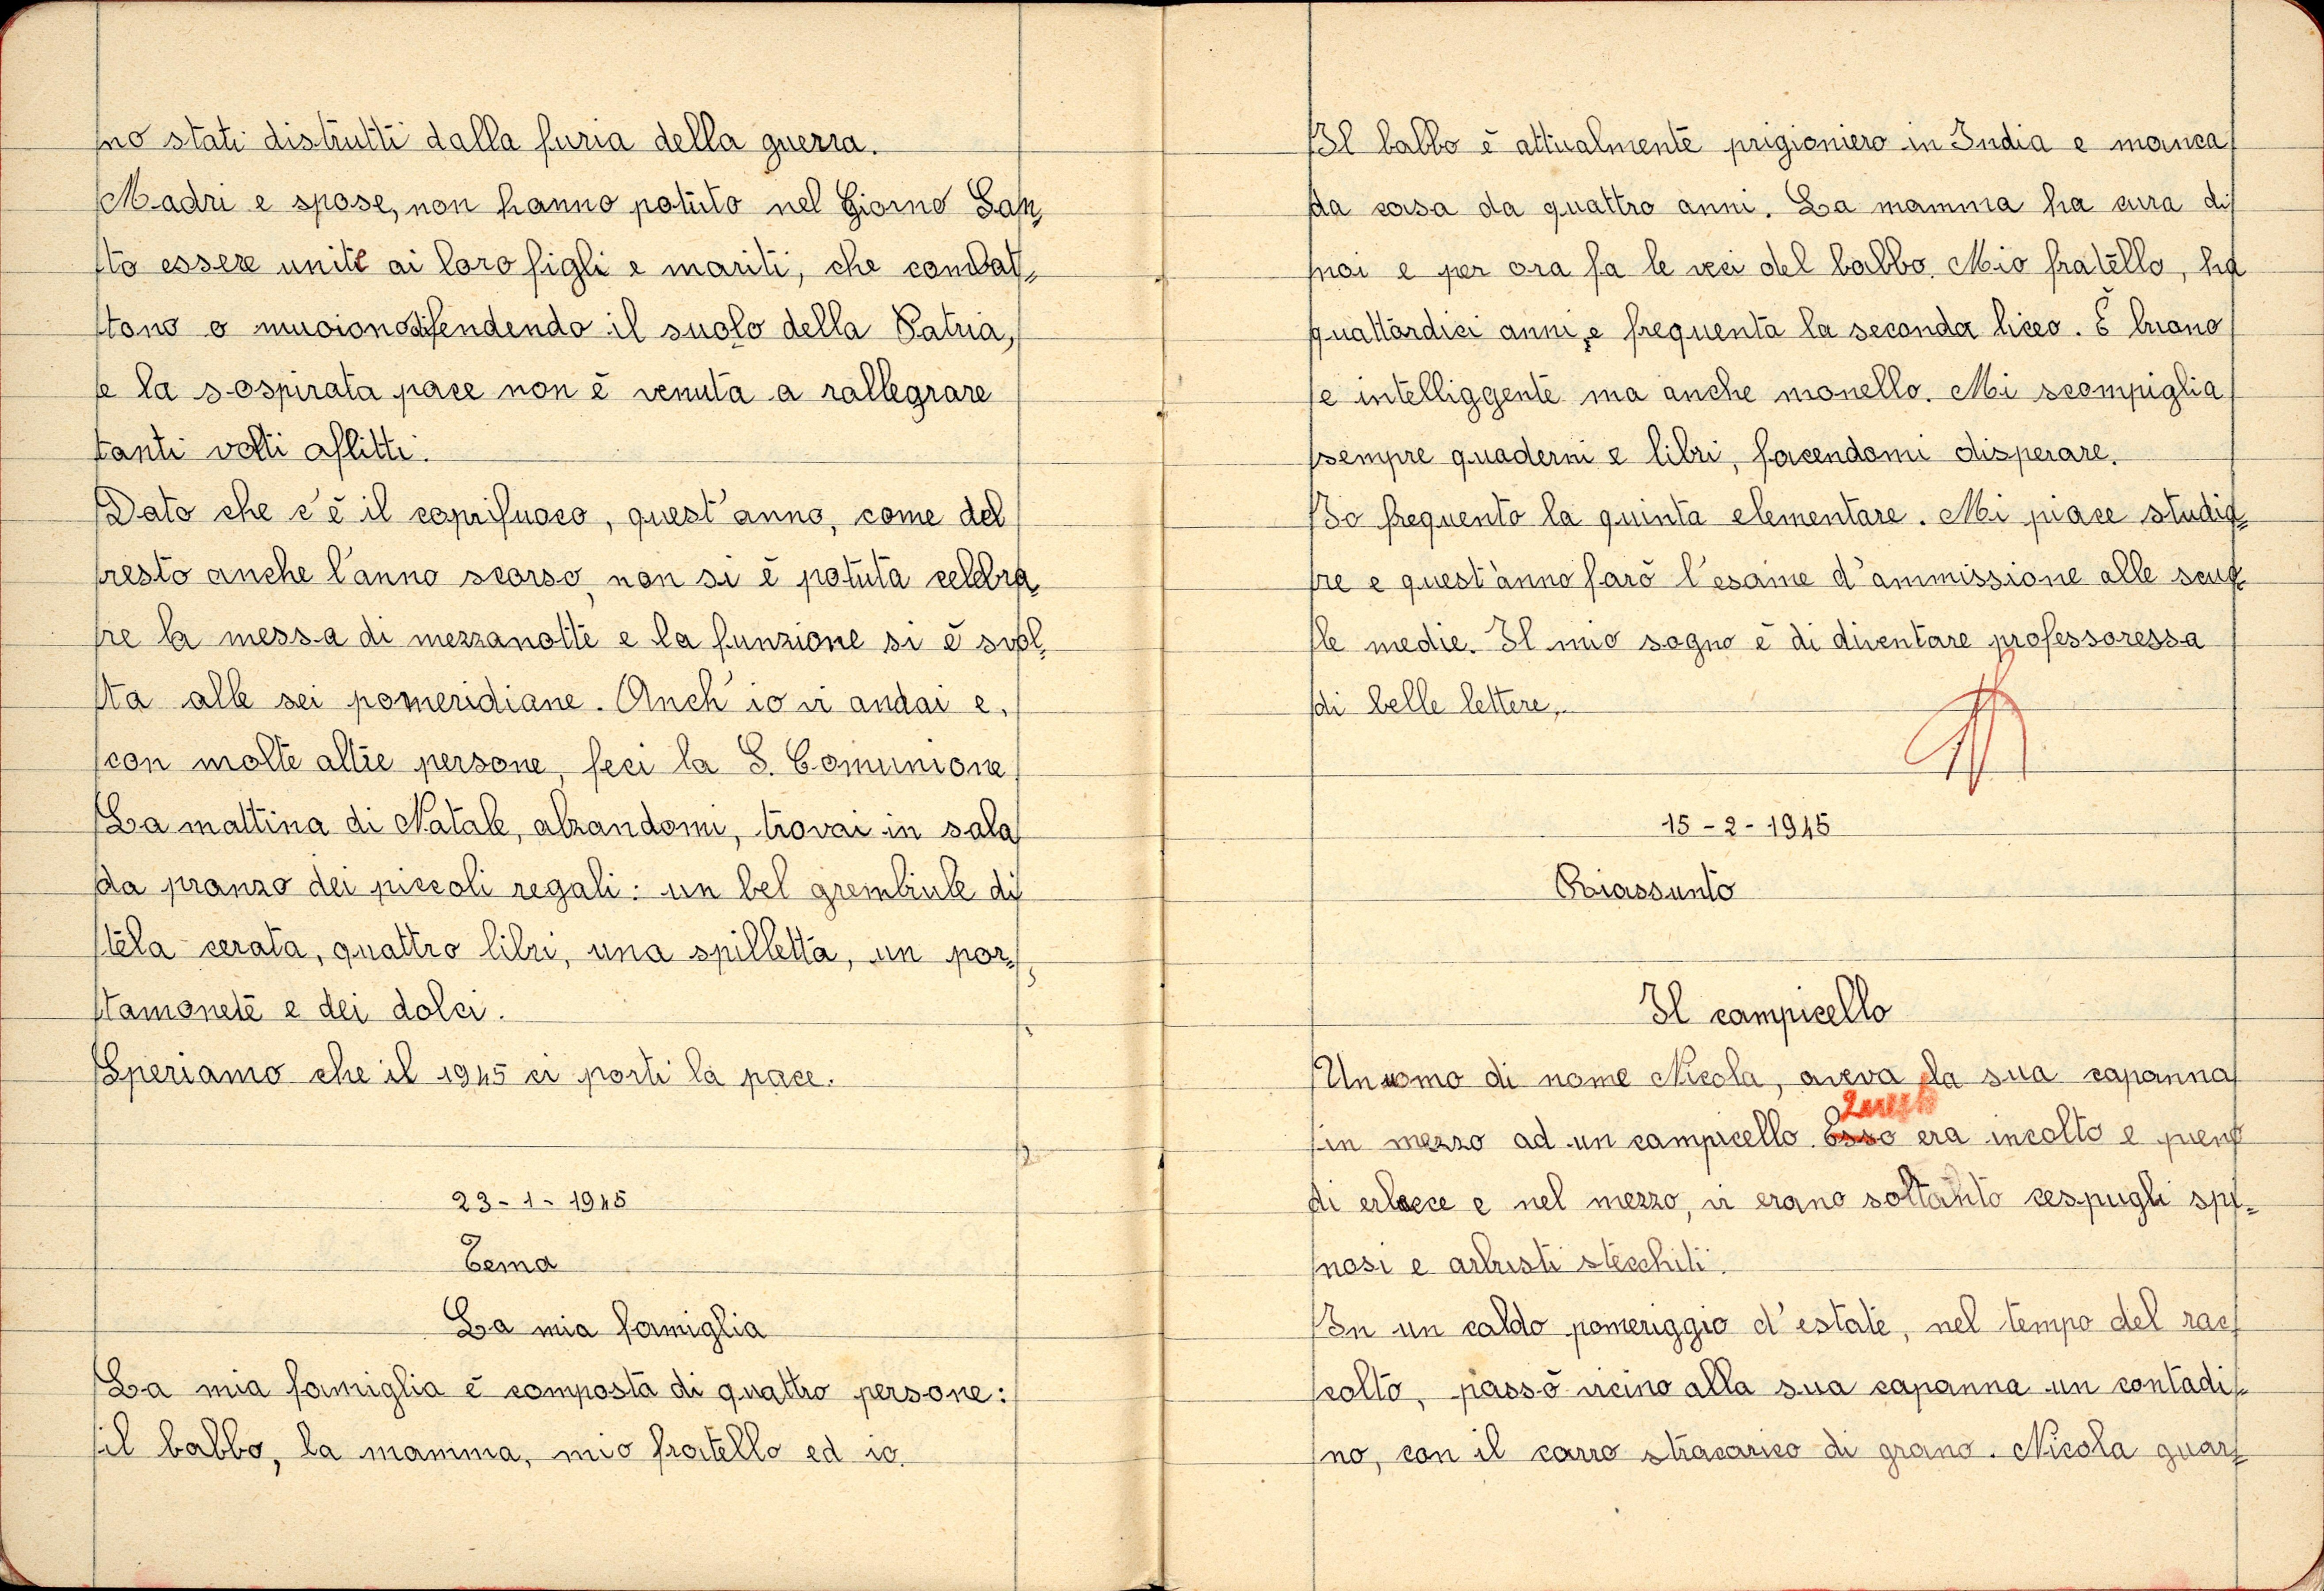 no stati distrutti dalla furia della guerra.
Madri e spose, non hanno potuto nel Giorno San,
to essere unite ai loro figli e mariti, che combat,
tono o muoiono difendendo il suolo della Patria,
e la sospirata pace non è venuta a rallegrare
tanti volti aflitti.
Dato che c'è il coprifuoco, quest'anno, come del
resto anche l'anno scorso, non si è potuta celebra,
re la messa di mezzanotte e la funzione si è svol,
ta alle sei pomeridiane. Anch'io vi andai e,
con molte altre persone, feci la S. Comunione
La mattina di Natale, alzandomi, trovai in sala
da pranzo dei piccoli regali: un bel grembiule di
tela cerata, quattro libri, una spilletta, un por,
tamonete e dei dolci.
Speriamo che il 1945 ci porti la pace.
23-1-1945
Tema
La mia famiglia
La mia famiglia è composta di quattro persone:
il babbo, la mamma, mio fratello ed io.
Il babbo è attualmente prigioniero in India e manca
da casa da quattro anni. La mamma ha cura di
noi e per ora fa le veci del babbo. Mio fratello, ha
quattordici anni, e frequenta la seconda liceo. È buono
e intelliggente ma anche monello. Mi scompiglia
sempre quaderni e libri, facendomi disperare.
Io frequento la quinta elementare. Mi piace studia,
re e quest'anno farò l'esame d'ammissione alle scuo
le medie. Il mio sogno è di diventare professoressa
di belle lettere.
15-2-1945
Riassunto
Il campicello
Un uomo di nome Nicola, aveva la sua capanna
Questo
in mezzo ad un campicello. Esso era incolto e pieno
di erbacce e nel mezzo, vi erano soltanto cespugli spi-
nosi e arbusti stecchiti.
In un caldo pomeriggio d'estate, nel tempo del rac
colto, passò vicino alla sua capanna un contadi,
no, con il carro stracarico di grano. Nicola guar,